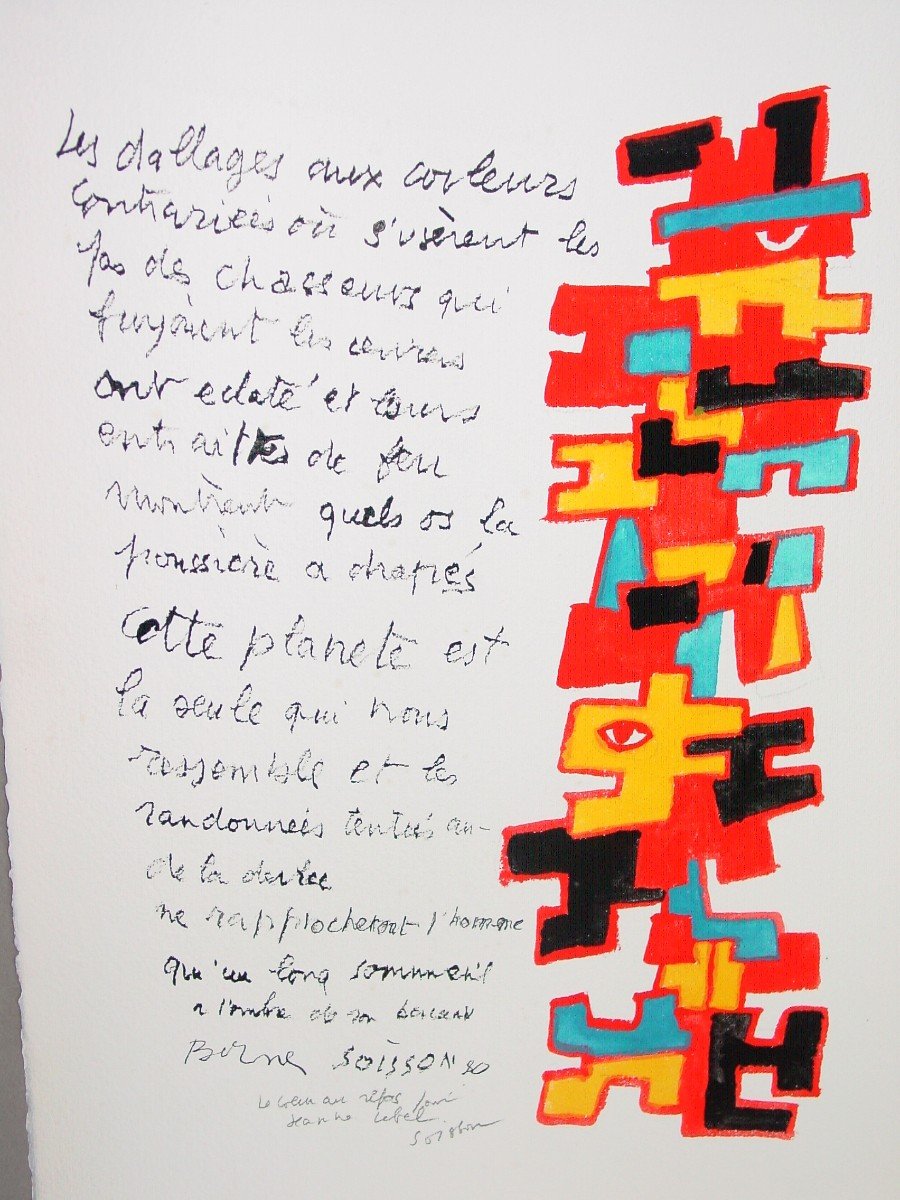 Les dallages aux couleurs
contrariées où s'usèrent les
pas des chasseurs qui
fuyaient les
ont eclaté et leurs
entrailles de feu
montrent quels os la
poussière a drapés
Cette planete est
la seule qui nous
ressemble et les
randonnées tentées au-
de la
ne rapprocheront l'homme
qu'un long sommeil
a l'ombre de son berceau
Berne SOISSON 80
Le au repos pour
Jeanne Lebel
Soisson